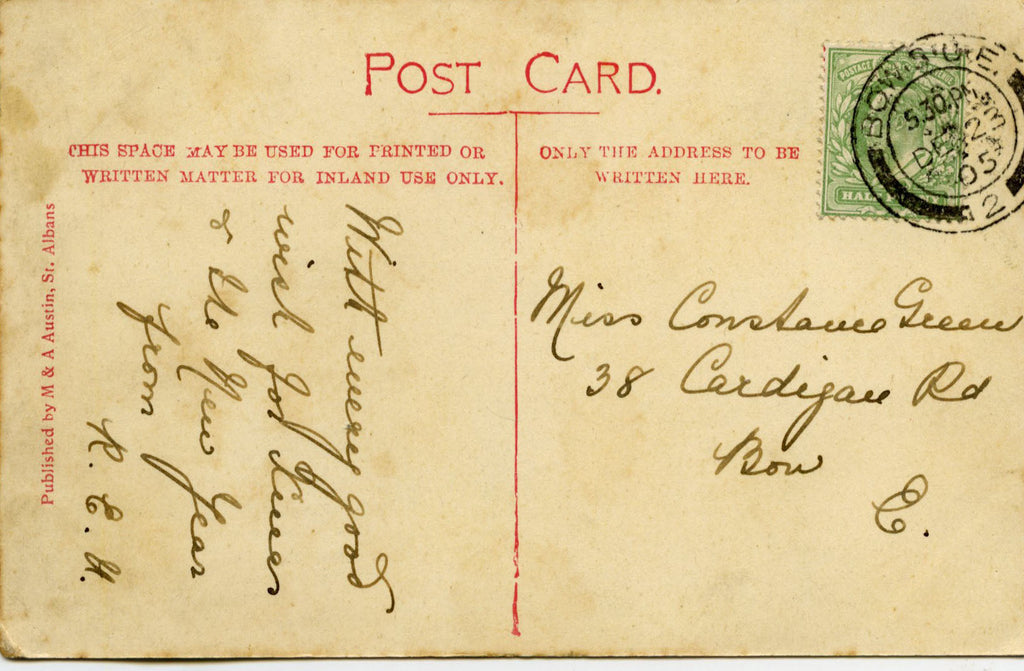 POST CARD.
THIS SPACE MAY BE USED FOR PRINTED OR
WRITTEN MATTER FOR INLAND USE ONLY.
ONLY THE ADDRESS TO BE
WRITTEN HERE.
Published by M & A Austin, St. Albans
With every good
wish for Xmas
& the New Year
from
R. E. H.
Miss Constance Green
38 Cardigan Rd
Bow
E.
POSTAGE
HAL
5 30 PM
DE
05
2